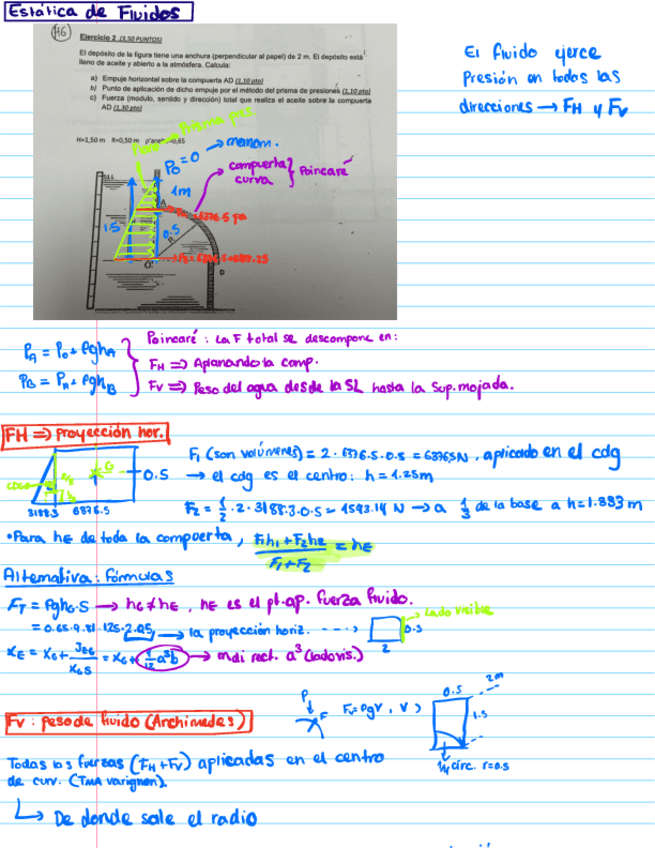 Estática de Fluidos
H6
Ejercicio 2 (3,50 PUNTOS)
El depósito de la figura tiene una anchura (perpendicular al papel) de 2 m. El depósito está
lleno de aceite y abierto a la atmósfera. Calcula:
a) Empuje horizontal sobre la compuerta AD (1,10 pto)
b) Punto de aplicación de dicho empuje por el método del prisma de presiones (1,10 pto)
c) Fuerza (modulo, sentido y dirección) total que realiza el aceite sobre la compuerta
AD (1,30 pto)
El fluido ejerce
Presión en todos las
direcciones → FH y FV
H=1,50 m R=0,50 m
Prisma pres.
P0 = 0 → manom.
compuerta curva } Poincaré
1m
A
6376.5 pa
1.5
0.5
R
O'
D
PA = P0 + ρghA
PB = PA + ρghB
Poincaré : La F total se descompone en:
FH => Aplanando la comp.
FV => Peso del agua desde la SL hasta la sup. mojada.
FH => Proyección hor.
G
0.5
3188.3 6376.5
F1 (son volúmenes) = 2 · 6376.5 · 0.5 = 6376.5N , aplicado en el cdg
→ el cdg es el centro: h = 1.25m
F2 = 1/2 · 2 · 3188.3 · 0.5 = 1593.14 N → a 1/3 de la base a h=1.333 m
•Para hE de toda la compuerta, F1h1+F2h2 / F1+F2 = hE
Alternativa: Fórmulas
FT = ρghG·S → hG ≠ hE , hE es el pt. ap. fuerza fluido.
= 0.65·9.81·125·2·0.5, → la proyección horiz. ---> 
lado visible
0.5
2
xE = xG +
xG S
= xG + 1/12 a³b → rect. a³ (lado vis.)
FV : peso de fluido (Archimedes)
P
F
FV = ρgV , V >
0.5
2m
1.5
1/4 circ. r=0.5
Todas las fuerzas (FH+FV) aplicadas en el centro
de curv. (TMA varignon).
↳ De donde sale el radio